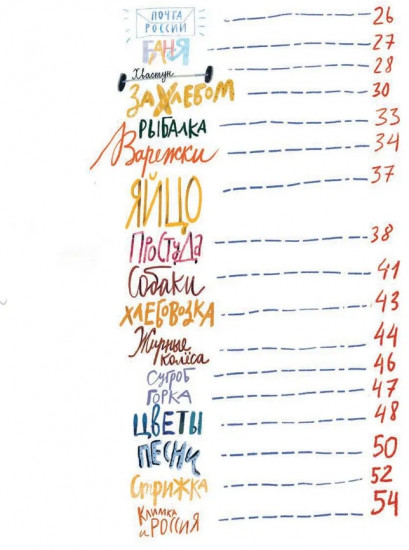 ПОЧТА
РОССИИ 26
БАНЯ 27
Хвастун 28
ЗА ХЛЕБОМ 30
РЫБАЛКА 33
Варежки 34
ЯЙЦО 37
ПРОСТУДА 38
Собаки 41
ХЛЕБОВОЗКА 43
Жирные
колёса 44
Сугроб 46
ГОРКА 47
ЦВЕТЫ 48
ПЕСНИ 50
СТРИЖКА 52
Климка
и РОССИЯ 54